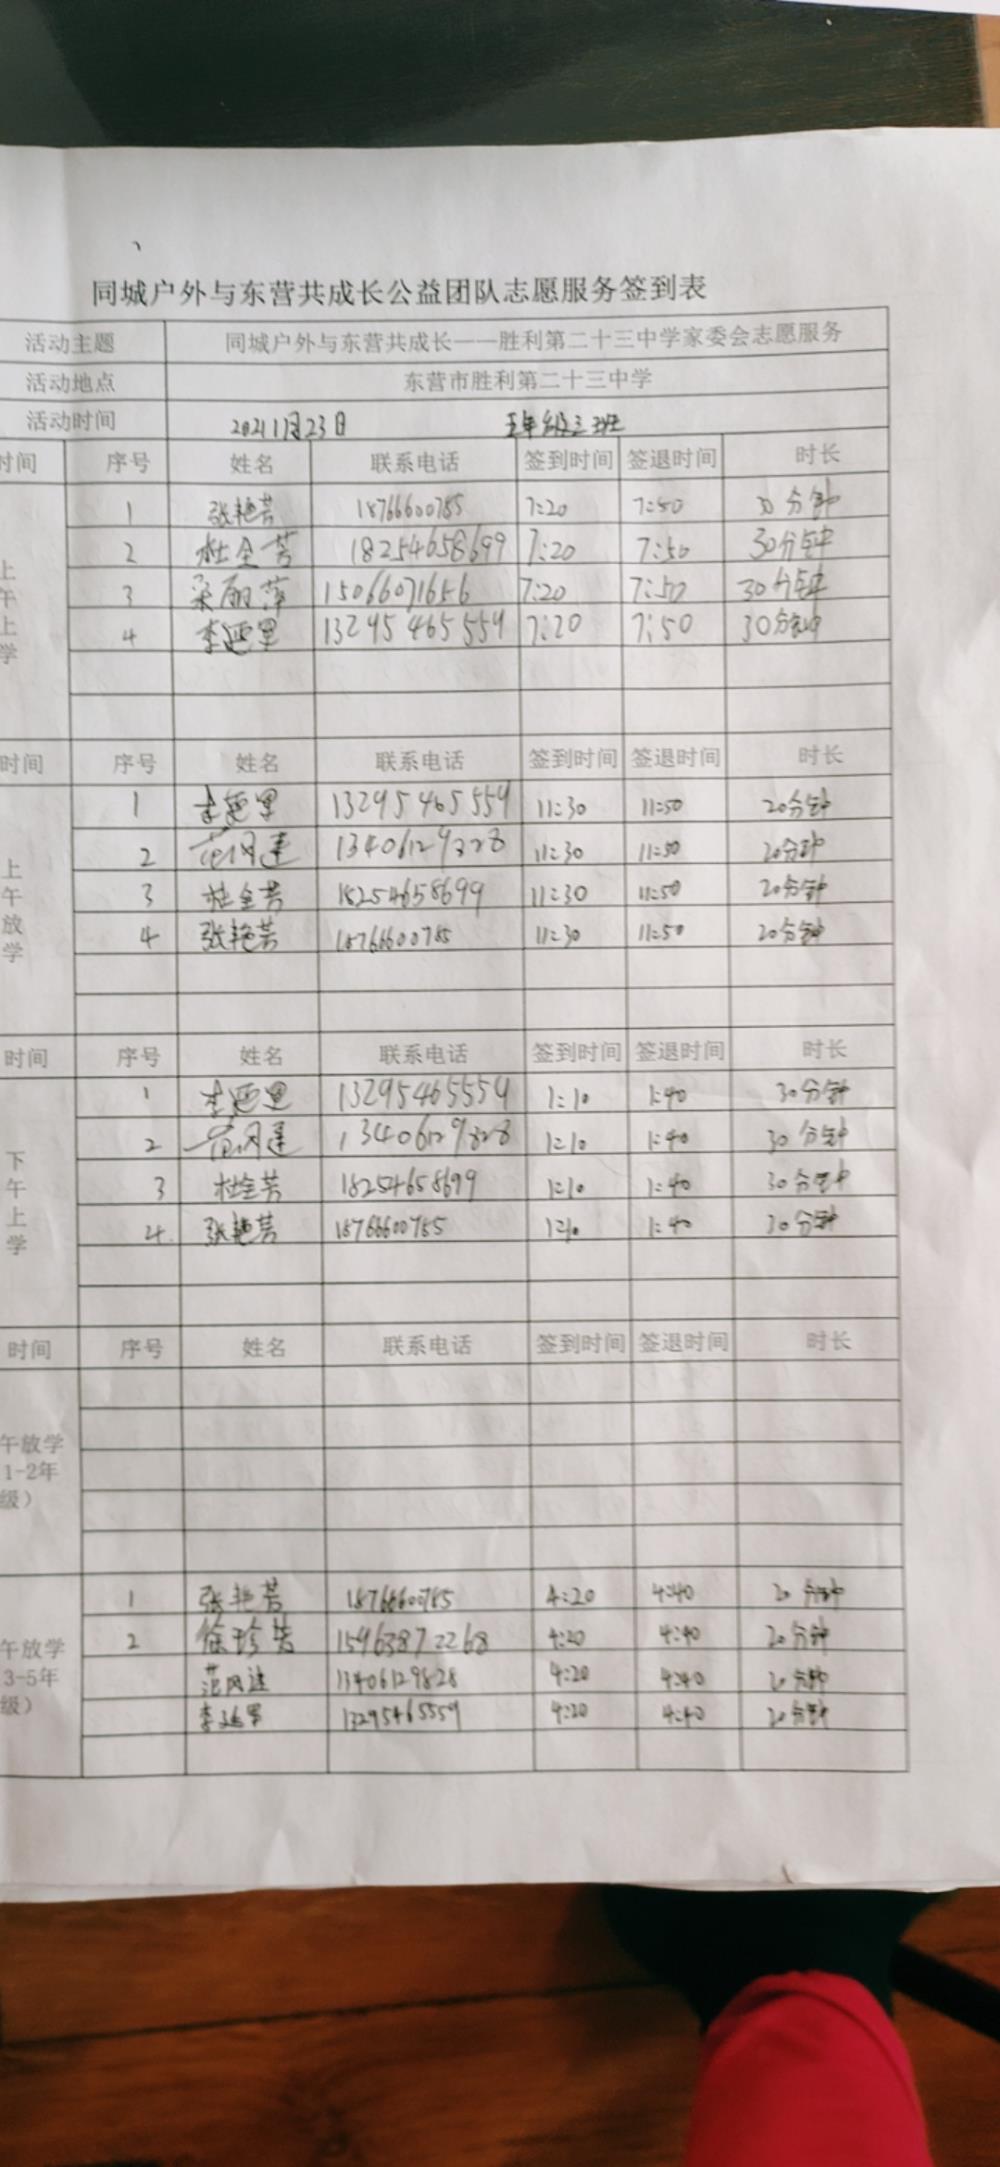 同城户外与东营共成长公益团队志愿服务签到表
活动主题 同城户外与东营共成长——胜利第二十三中学家委会志愿服务
活动地点 东营市胜利第二十三中学
活动时间 2021 11月23日 五年级三班
时间 序号 姓名 联系电话 签到时间 签退时间 时长
上午上学
1 张艳芳 18766600785 7:20 7:50 30分钟
2 杜全芳 18254658699 7:20 7:50 30分钟
3 梁丽萍 15066071656 7:20 7:50 30分钟
4 李 13295465559 7:20 7:50 30分钟
时间 序号 姓名 联系电话 签到时间 签退时间 时长
上午放学
1 李 13295465559 11:30 11:50 20分钟
2 范 13406129828 11:30 11:50 20分钟
3 杜全芳 18254658699 11:30 11:50 20分钟
4 张艳芳 18766600785 11:30 11:50 20分钟
时间 序号 姓名 联系电话 签到时间 签退时间 时长
下午上学
1 李 13295465559 1:10 1:40 30分钟
2 范 13406129828 1:10 1:40 30分钟
3 杜全芳 18254658699 1:10 1:40 30分钟
4 张艳芳 18766600785 1:10 1:40 30分钟
时间 序号 姓名 联系电话 签到时间 签退时间 时长
午放学
1-2年
级）
午放学
3-5年
级）
1 张艳芳 18766600785 4:20 4:40 20分钟
2 徐珍 15963872268 4:20 4:40 20分钟
范 13406129828 4:20 4:40 20分钟
李 13295465559 4:20 4:40 20分钟